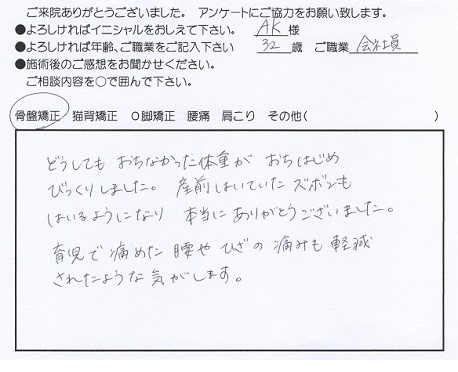 ご来院ありがとうございました。 アンケートにご協力をお願い致します。
●よろしければイニシャルをおしえて下さい。 AK 様
●よろしければ年齢、ご職業をご記入下さい 32 歳 ご職業 会社員
●施術後のご感想をお聞かせください。
ご相談内容を○で囲んで下さい。
骨盤矯正 猫背矯正 O脚矯正 腰痛 肩こり その他( )
どうしても おちなかった体重が おちはじめ
びっくりしました。 産前はいていた ズボンも
はいるようになり 本当に ありがとうございました。
育児で 痛めた 腰や ひざの 痛みも 軽減
されたような 気がします。